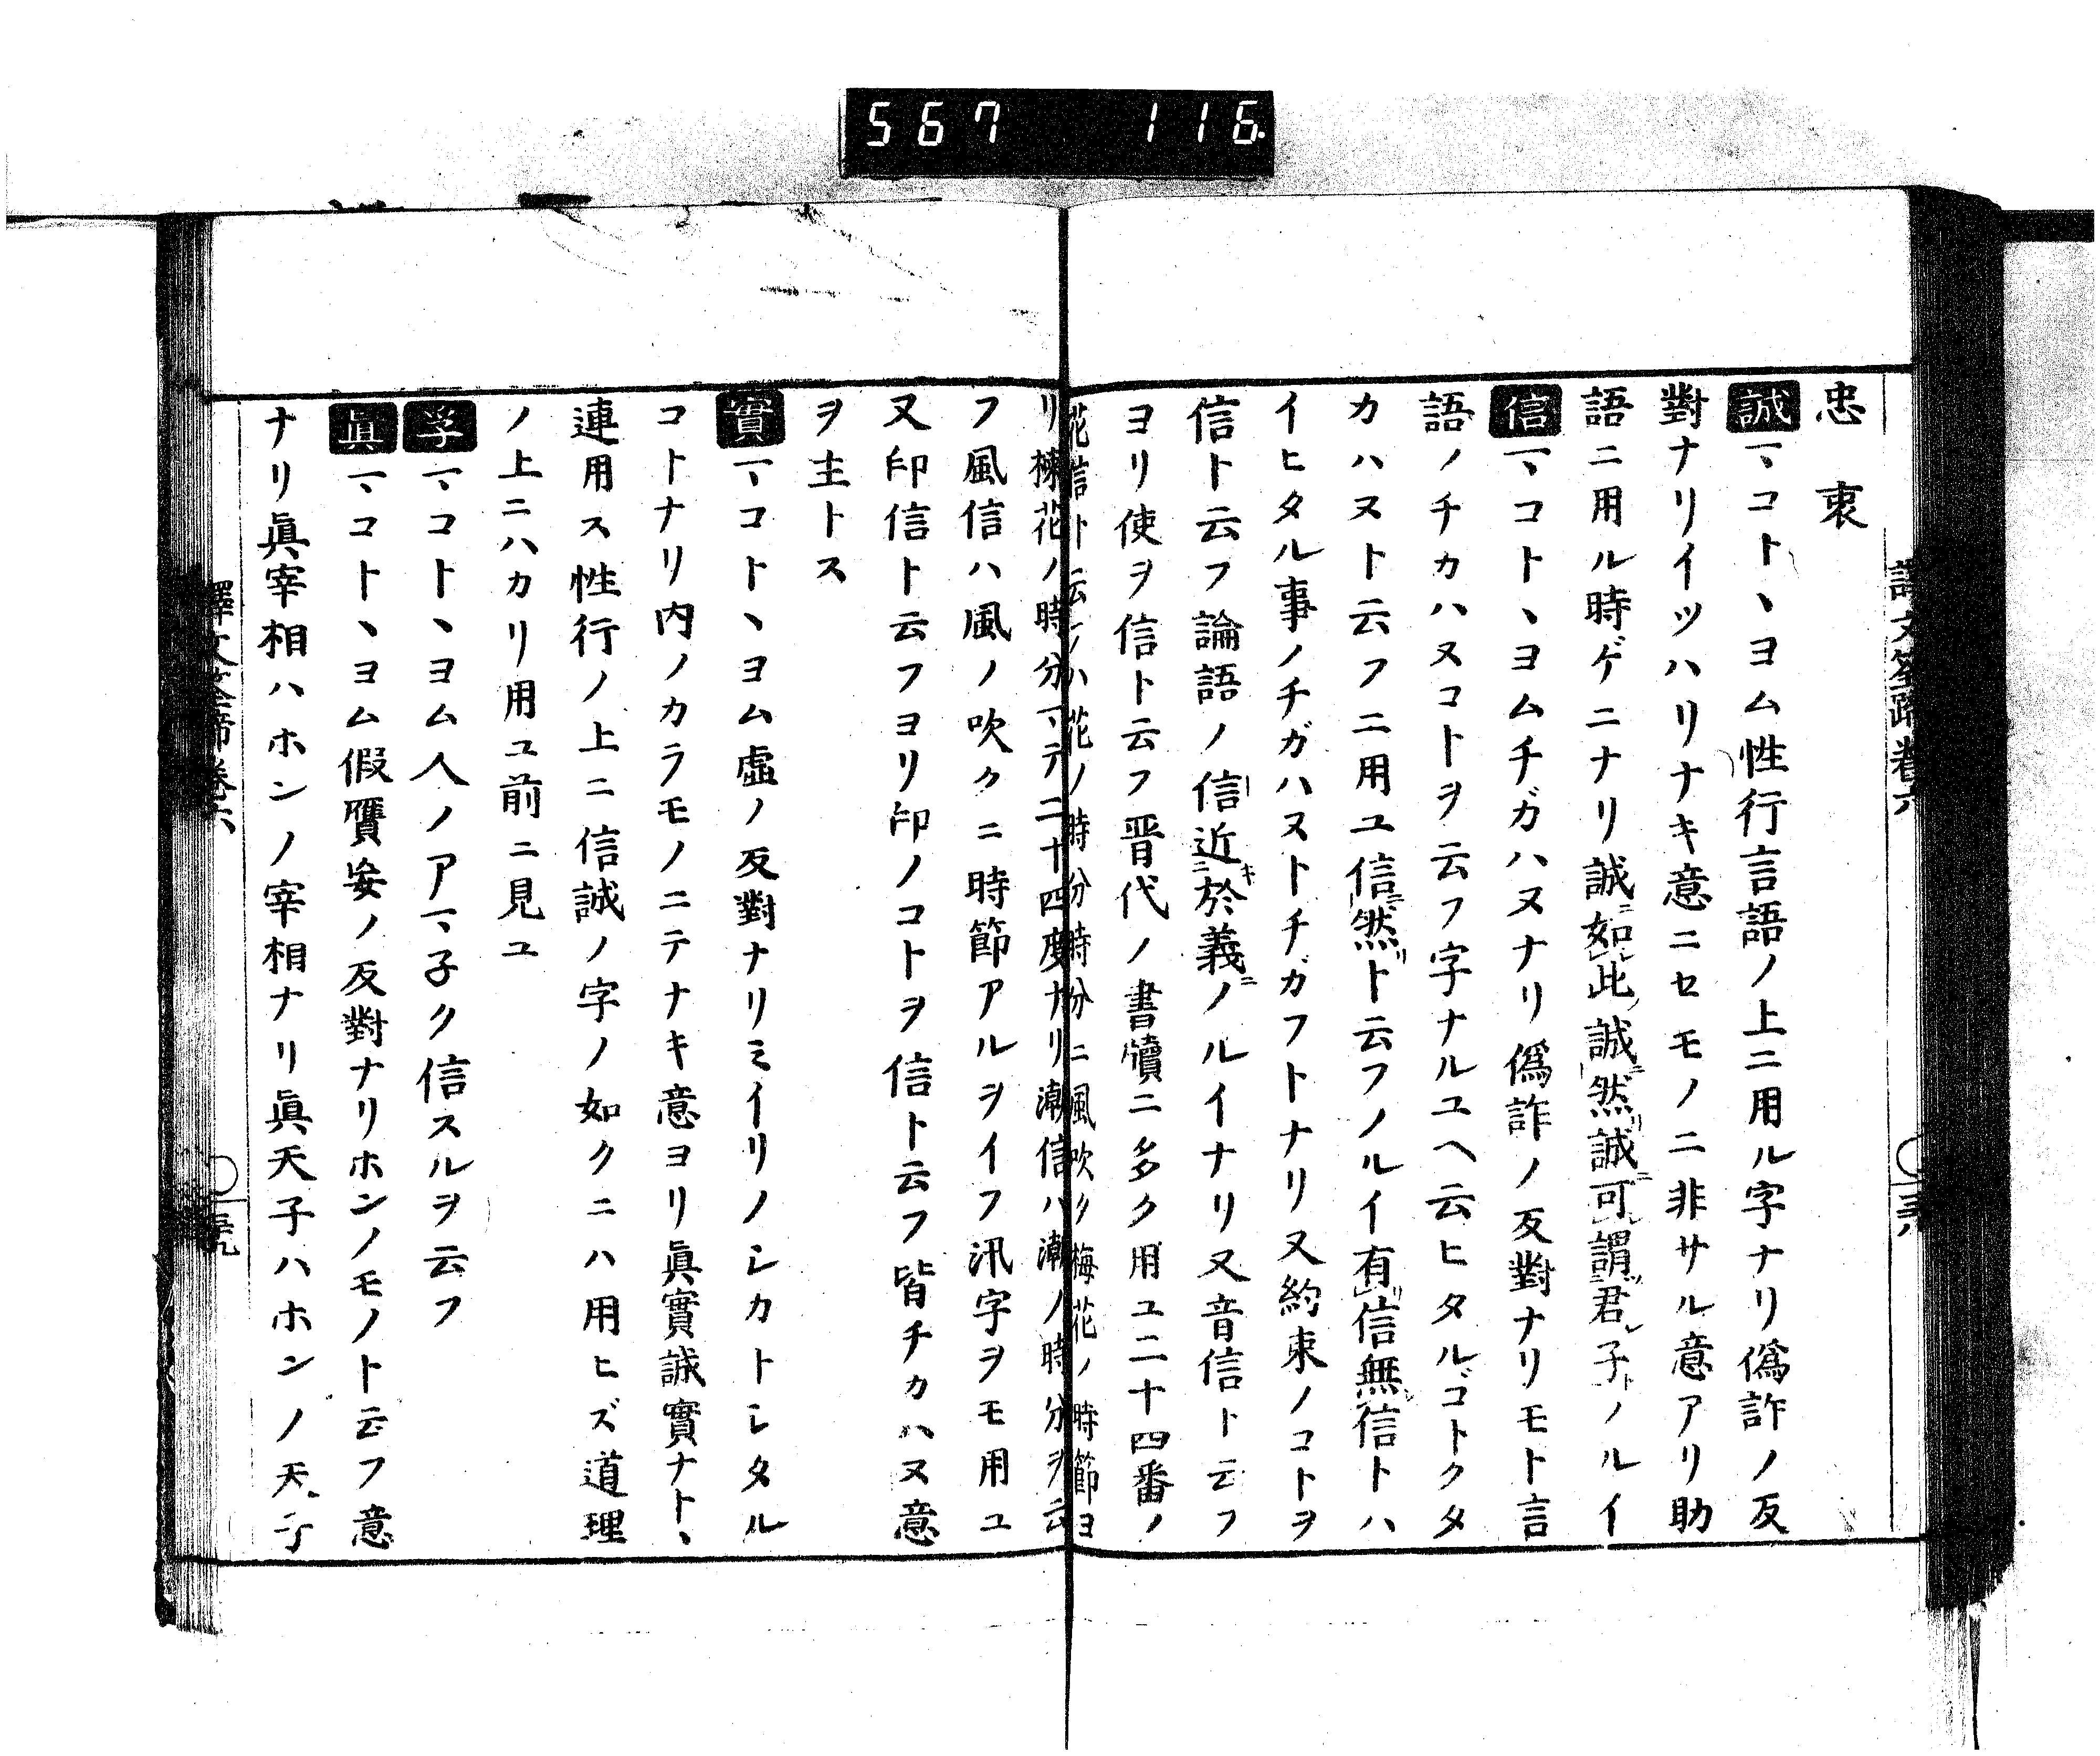 567 116
忠 衷
誠 マコトヽヨム性行言語ノ上ニ用ル字ナリ僞詐ノ反
對ナリイツハリナキ意ニセモノニ非サル意アリ助
語ニ用ル時ゲニナリ誠ニ如此誠ニ然誠ニ可謂君子トノルイ
信 マコトヽヨムチガハヌナリ僞詐ノ反對ナリモト言
語ノチカハヌコトヲ云フ字ナルユヘ云ヒタルコトクタ
カハヌト云フニ用ユ信ニ然ト云フノルイ有信無信トハ
イヒタル事ノチガハヌトチガフトナリ又約束ノコトヲ
信ト云フ論語ノ信近於義ニノルイナリ又音信ト云フ
ヨリ使ヲ信ト云フ晋代ノ書牘ニ多ク用ユ二十四番ノ
花信ト云フハ花ノ時分時分ニ風吹ク梅花ノ時節ヨ
リ楝花ノ時分マテ二十四度ナリ潮信ハ潮ノ時分ヲ云
フ風信ハ風ノ吹クニ時節アルヲイフ汛字ヲモ用ユ
又印信ト云フヨリ印ノコトヲ信ト云フ皆チカハヌ意
ヲ主トス
實 マコトヽヨム虛ノ反對ナリミイリノシカトシタル
コトナリ内ノカラモノニテナキ意ヨリ眞實誠實ナトヽ
連用ス性行ノ上ニ信誠ノ字ノ如クニハ用ヒズ道理
ノ上ニハカリ用ユ前ニ見ユ
孚 マコトヽヨム人ノアマ子ク信スルヲ云フ
眞 マコトヽヨム假贋妄ノ反對ナリホンノモノト云フ意
ナリ眞宰相ハホンノ宰相ナリ眞天子ハホンノ天子
譯文筌蹄卷六